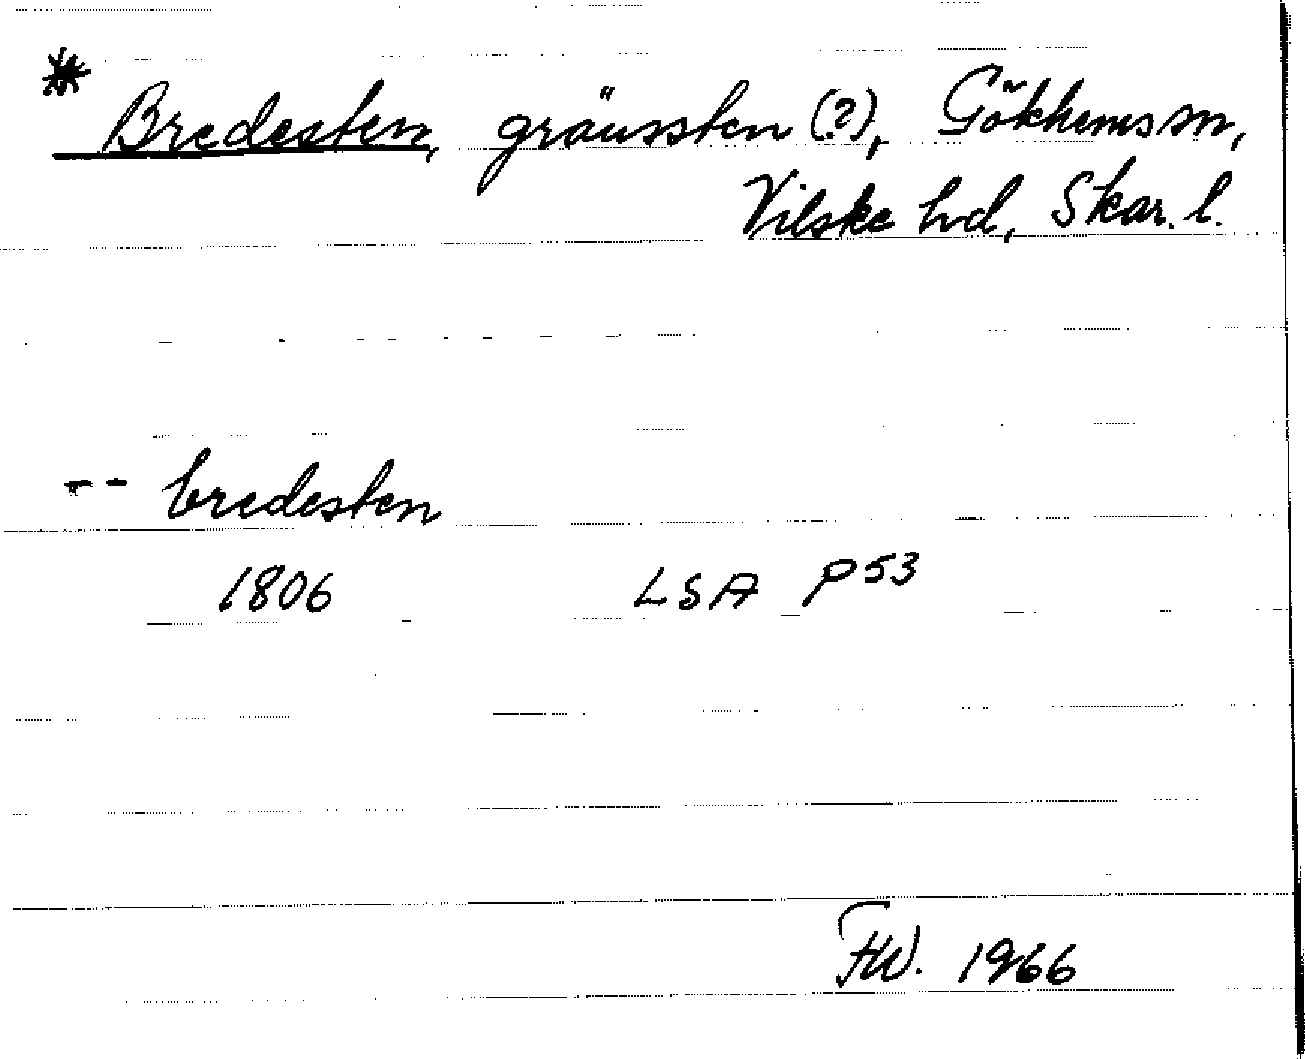 * Bredesten, gränssten (?), Gökhems sn,
Vilske hd, Skar. l.
-- bredesten
1806 LSA P53
FW. 1966